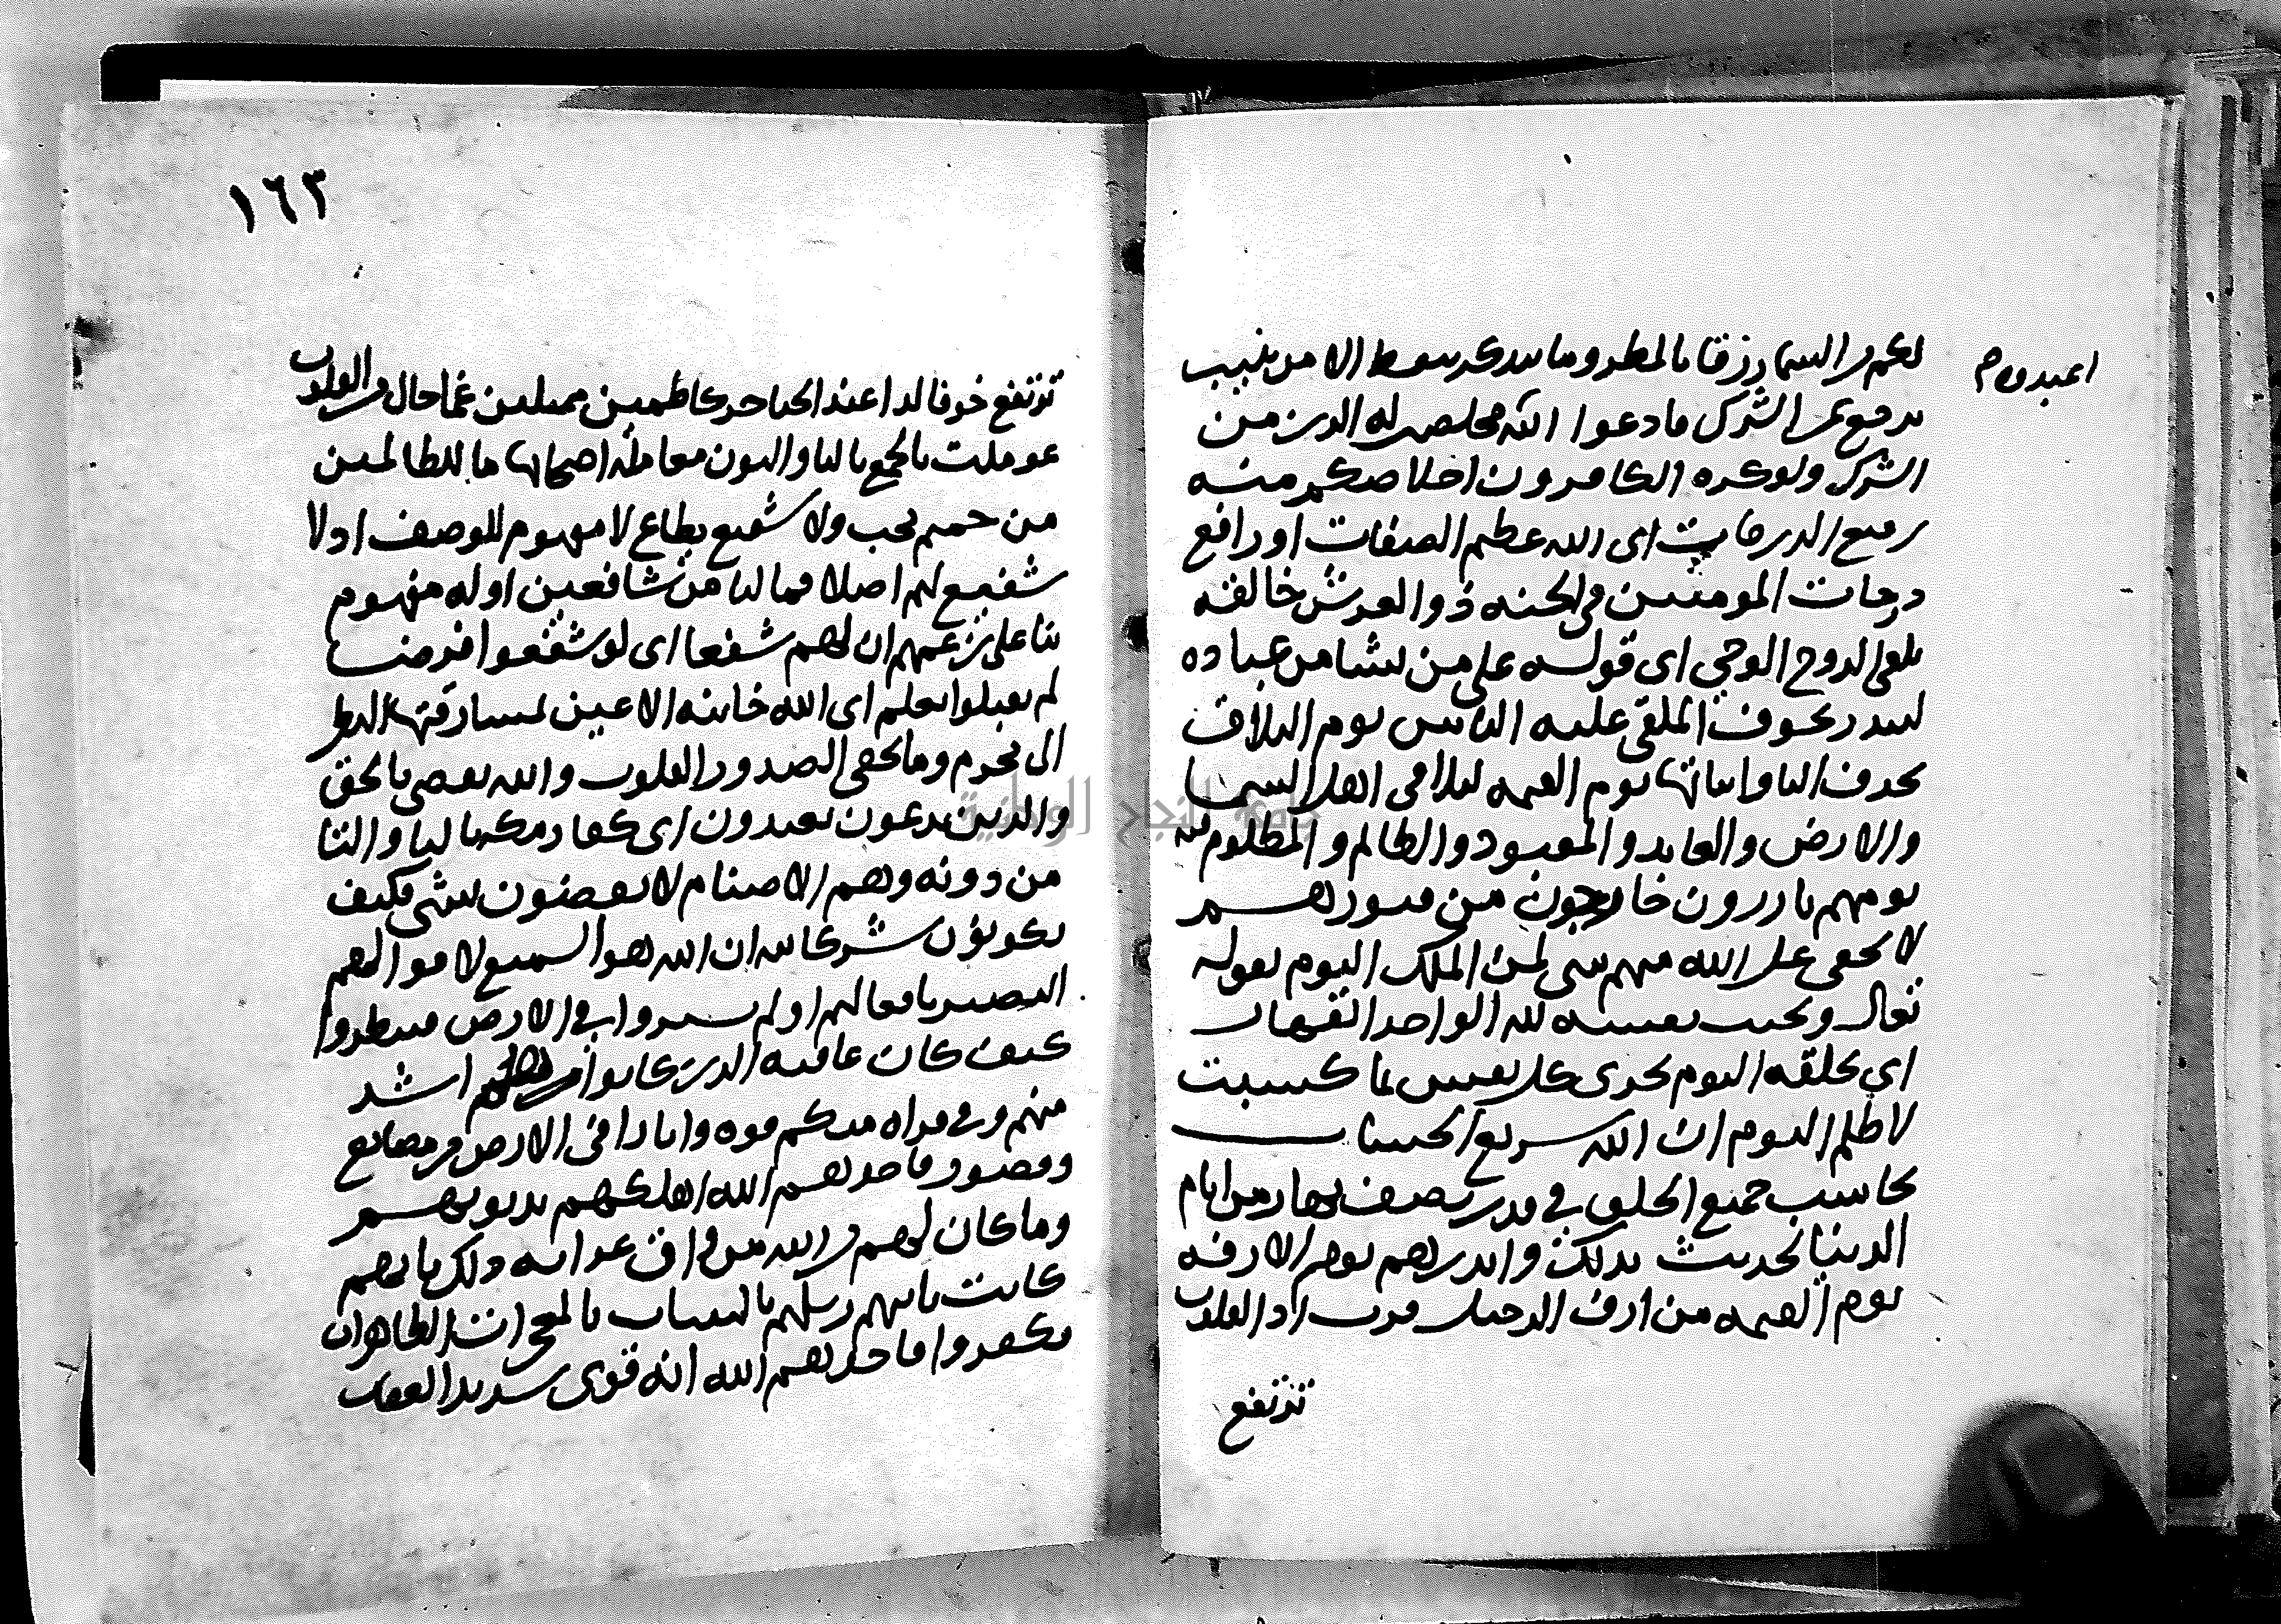 لكم من السما رزقا بالمطر وما يتذكر يتعظ الا من ينيب
اعبدوه م
يرجع عن الشرك فادعوا الله مخلصين له الدين من
الشرك ولو كره الكافرون اخلاصكم منه
رفيع الدرجات اى الله عظيم الصفات او رافع
درجات المومنين في الجنه ذو العرش خالقه
يلقى الروح الوحي اى قوله على من يشا من عباده
لينذر يخوف الملقى عليه الناس يوم التلاق
بحذف اليا واثباتها يوم القيمه لتلاقى اهل السما
والارض والعابد والمعبود والظالم والمظلوم فيه
يومهم بارزون خارجون من قبورهم
لا يخفى على الله منهم شى لمن الملك اليوم يقوله
تعالى ويجيب نفسه لله الواحد القهار
اي لخلقه اليوم تجزى كل نفس بما كسبت
لا ظلم اليوم ان الله سريع الحساب
يحاسب جميع الخلق في قدر نصف نهار من ايام
الدنيا لحديث بذلك وانذرهم يوم الازفه
يوم القيمه من ازف الرحيل قرب اذ القلوب
ترتفع
١٦٣
ترتفع خوفا لدا عند الحناجر كاظمين ممتلين غما حال من القلوب
عوملت بالجمع باليا والنون معاملة اصحابها ما للظالمين
من حميم محب ولا شفيع يطاع لا مفهوم للوصف اذ لا
شفيع لهم اصلا فما لنا من شافعين او له مفهوم
بنا على زعمهم ان لهم شفعا اى لو شفعوا فرضا
لم يقبلوا يعلم اى الله خاينه الاعين بمسارقتها النظر
الى محرم وما تخفى الصدور القلوب والله يقضى بالحق
والذين يدعون يعبدون اى كفار مكه باليا والتا
من دونه وهم الاصنام لا يقضون بشى فكيف
يكونون شركا لله ان الله هو السميع لاقوالهم
البصير بافعالهم اولم يسيروا في الارض فينظروا
كيف كان عاقبه الذين كانوا من قبلهم اشد
منهم وفي قراه منكم قوه واثارا في الارض من مصانع
وقصور فاخذهم الله اهلكهم بذنوبهم
وما كان لهم من الله من واق عذابه ذلك بانهم
كانت تاتيهم رسلهم بالبينات بالمعجزات الظاهرات
فكفروا فاخذهم الله انه قوى شديد العقاب
جامعة النجاح الوطنية